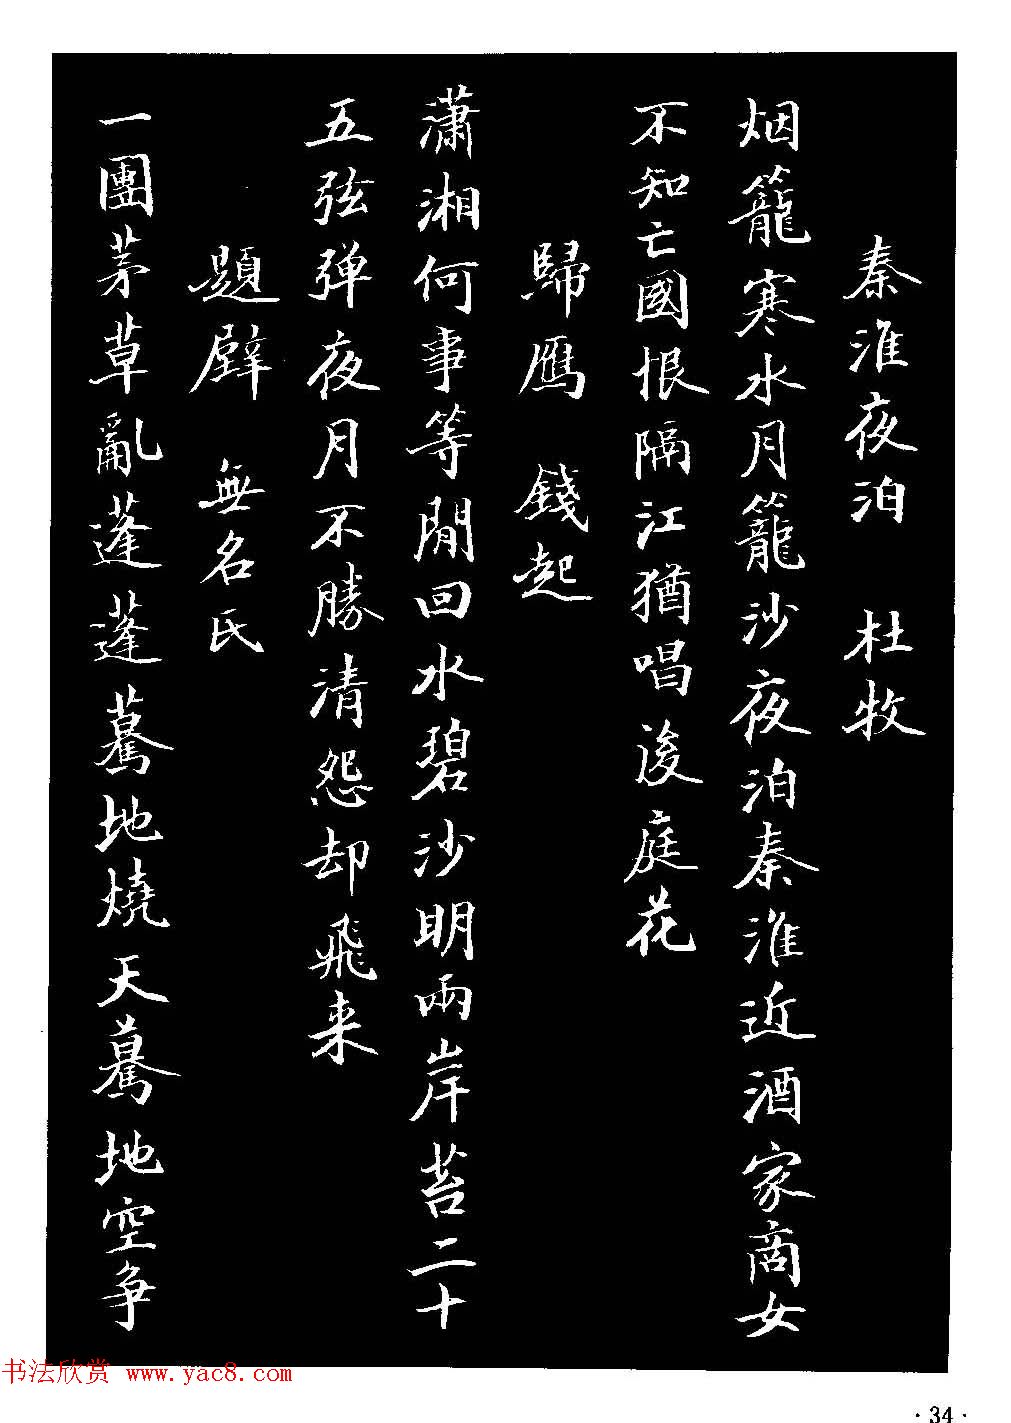 秦淮夜泊 杜牧
烟籠寒水月籠沙夜泊秦淮近酒家商女
不知亡國恨隔江猶唱後庭花
歸鴈 錢起
瀟湘何事等閒回水碧沙明兩岸苔二十
五弦弹夜月不勝清怨却飛来
題壁 無名氏
一團茅草亂蓬蓬驀地燒天驀地空争
书法欣赏 www.yac8.com
·34·